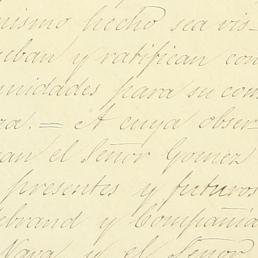 mismo hecho sea vis-
ueban y ratifican con
unidades para su cons
za.= A cuya obser
gan el Señor Gomez
presentes y futuros
ebrand y Compañia
Nava y el Señor